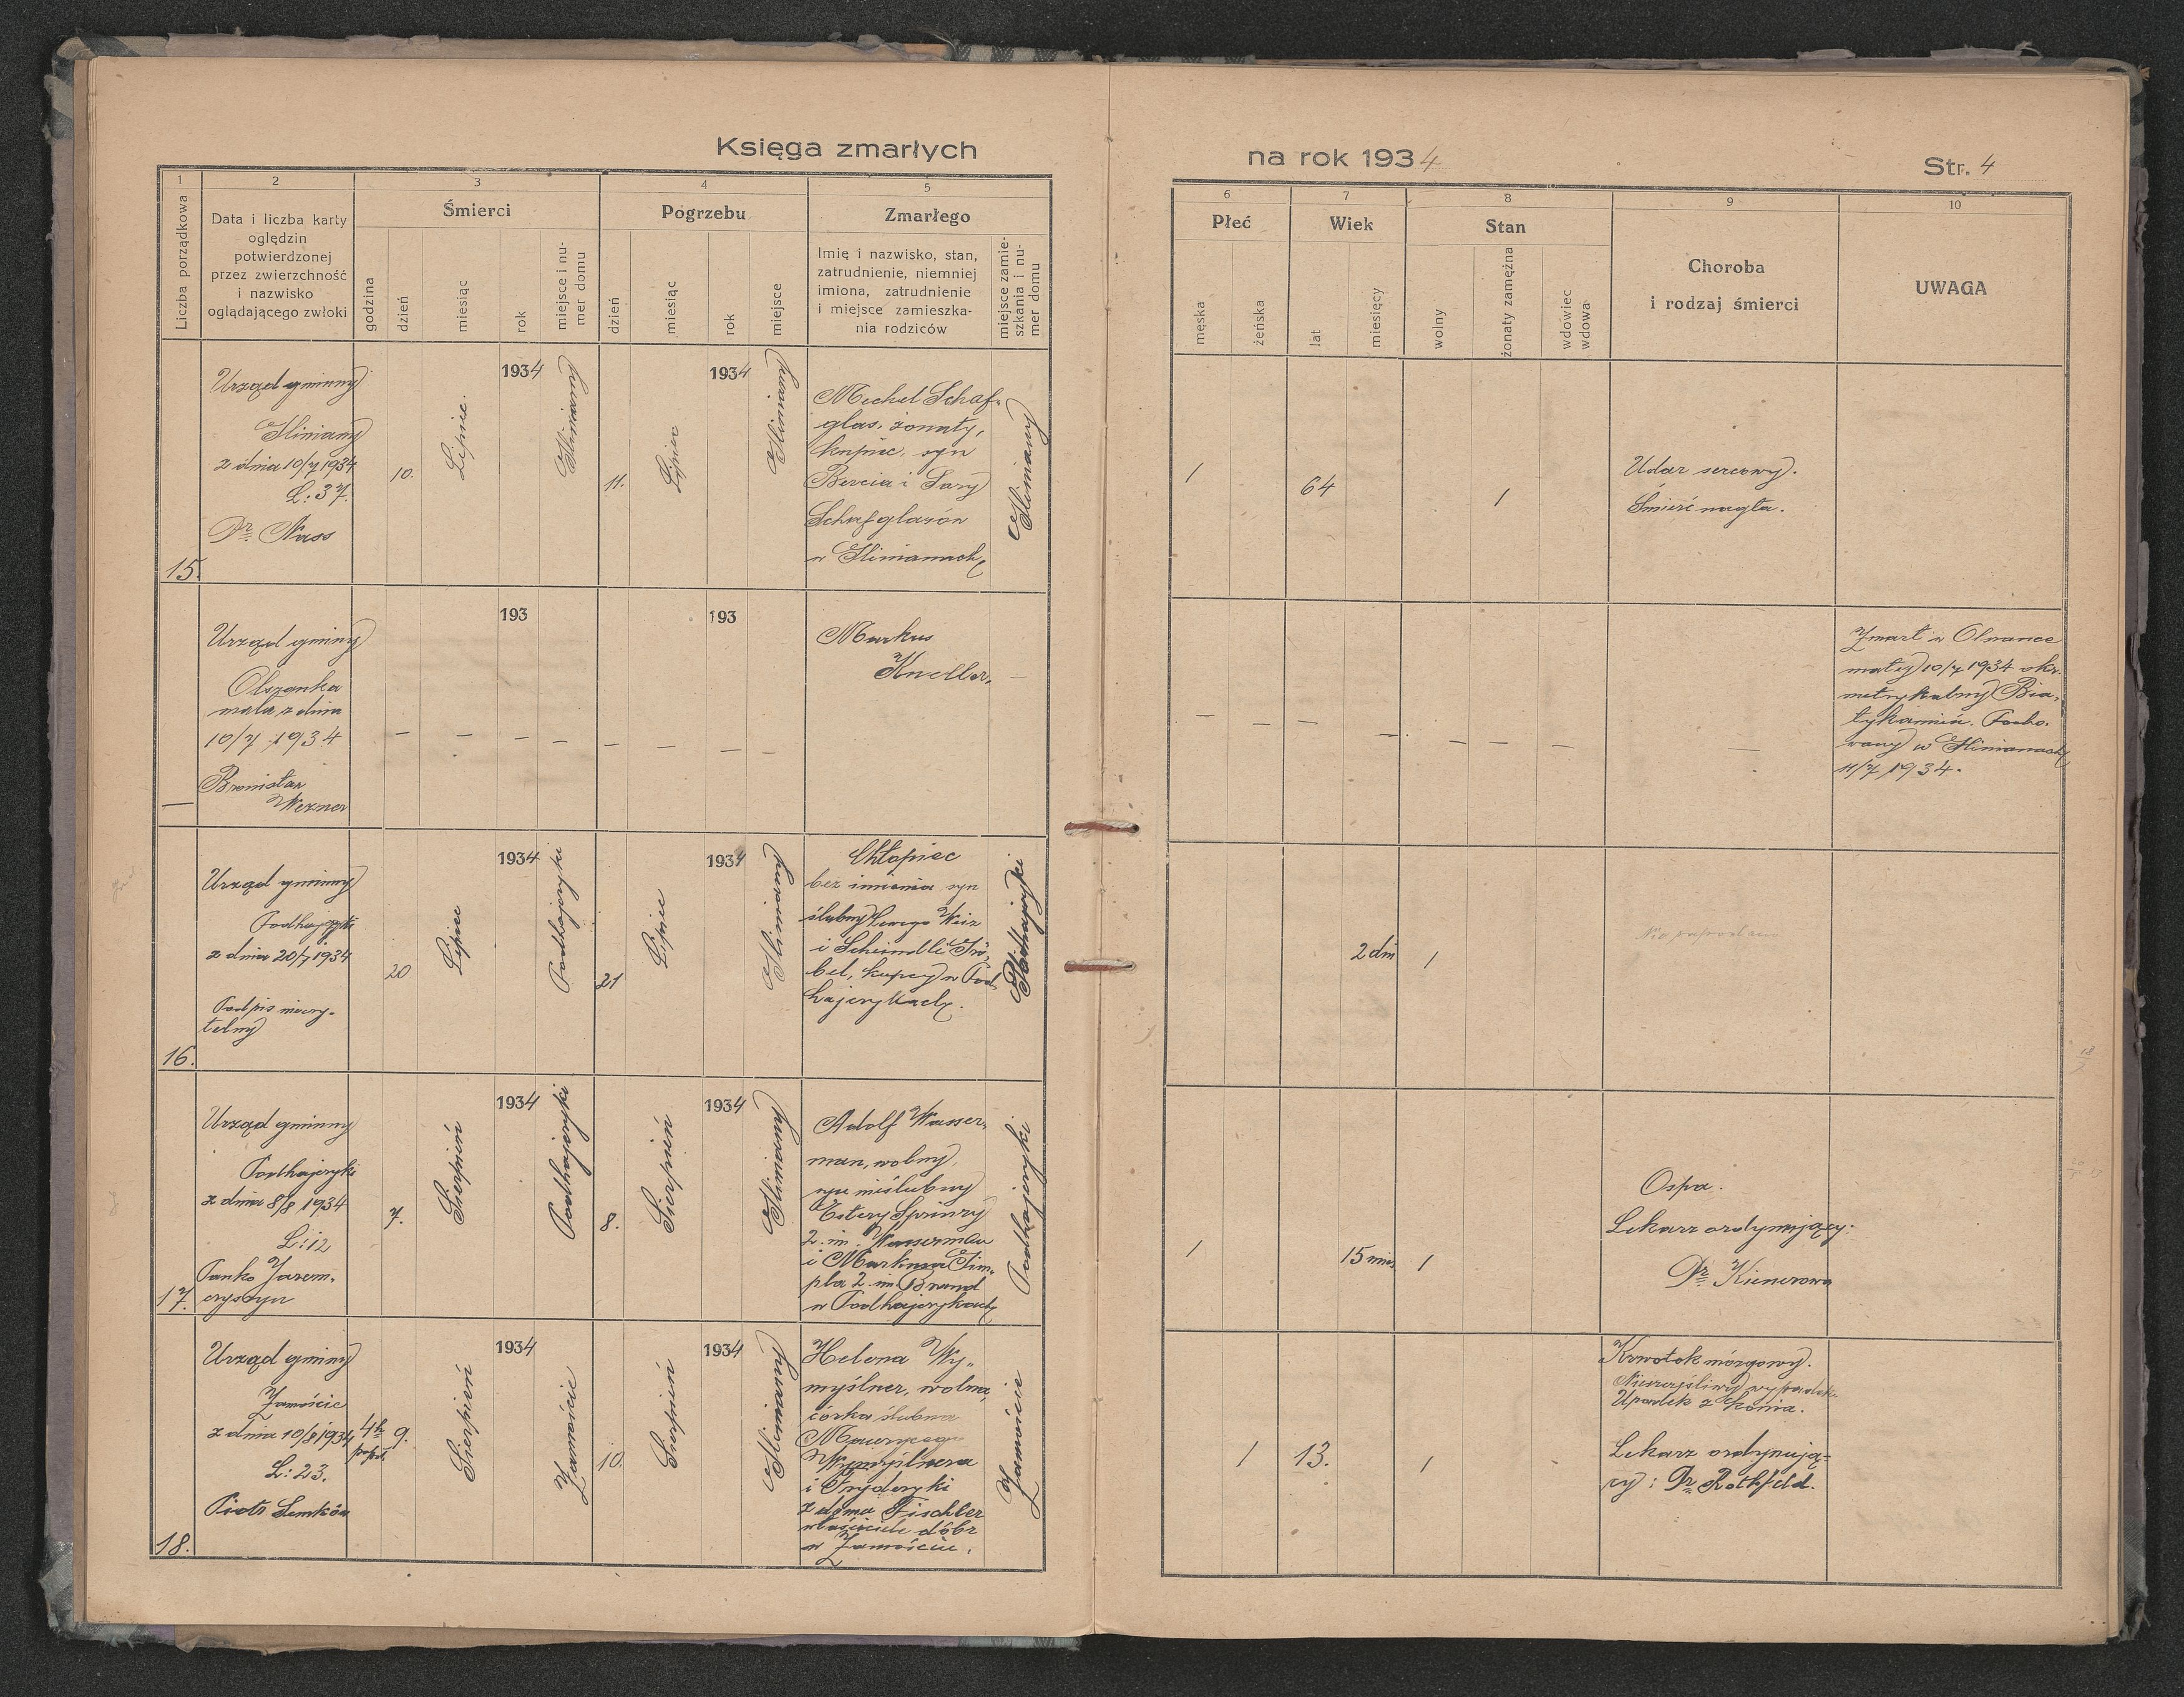 Księga zmarłych
na rok 1934
Str. 4
1
2
3
4
5
6
7
8
9
10
Liczba porządkowa
Data i liczba karty
oględzin
potwierdzonej
przez zwierzchność
i nazwisko
oglądającego zwłoki
Śmierci
godzina
dzień
miesiąc
rok
miejsce i nu-
mer domu
Pogrzebu
dzień
miesiąc
rok
miejsce
Zmarłego
Imię i nazwisko, stan,
zatrudnienie, niemniej
imiona, zatrudnienie
i miejsce zamieszka-
nia rodziców
miejsce zamie-
szkania i nu-
mer domu
Płeć
męska
żeńska
Wiek
lat
miesięcy
Stan
wolny
żonaty zamężna
wdowiec
wdowa
Choroba
i rodzaj śmierci
UWAGA
15.
Urząd gminny
Gliniany
z dnia 10/7 1934
L: 37.
Dr. Nass
10.
Lipiec
1934
Gliniany
11.
Lipiec
1934
Gliniany
Mechel Schaf-
glas, żonaty,
kupiec, syn
Bercia i Sary
Schafglasów
w Glinianach
Gliniany
1
64
1
Udar sercowy.
Śmierć nagła.
—
Urząd gminy
Olszanka
mała z dnia
10/7 1934
Bronisław
Wezner
— — 193 — — — — 193 — —
Markus
Kneller.
—
— — — — — — — —
Zmarł w Olszance
małej 10/7 1934 okr.
metrykalny Bia-
łykamień. Pocho-
wany w Glinianach
11/7 1934.
16.
Urząd gminny
Podhajczyki
z dnia 20/7 1934
Podpis nieczy-
telny
20
Lipiec
1934
Podhajczyki
21
Lipiec
1934
Gliniany
Chłopiec
bez imienia syn
ślubny Weis
i Scheindle
bel, kupcy w Pod-
hajczykach.
Podhajczyki
2 dni
1
Nie podano
17.
Urząd gminny
Podhajczyki
z dnia 8/8 1934
L: 12
Panko Jarem-
czyszyn
7.
Sierpień
1934
Podhajczyki
8.
Sierpień
1934
Gliniany
Adolf Wasser-
man, wolny,
syn nieślubny
Estery Sprinzy
2. im. Wasserman
i Markusa Sim-
2. im. Brand
w Podhajczykach
Podhajczyki
1
15 mies.
1
Ospa.
Lekarz ordynujący:
Dr. Kienerowa
18.
Urząd gminy
Zamoście
z dnia 10/8 1934
L: 23.
Piotr Semków
4h
popoł.
9.
Sierpień
1934
Zamoście
10.
Sierpień
1934
Gliniany
Helena Wy-
myślner, wolna,
córka ślubna
Maurycego
Wymyślnera
i Fryderyki
z domu Fischler
właściciele dóbr
w Zamościu.
Zamoście
1
13.
1
Krwotok mózgowy.
Nieszczęśliwy wypadek.
Upadek z konia.
Lekarz ordynują-
cy: Dr. Rothfeld.